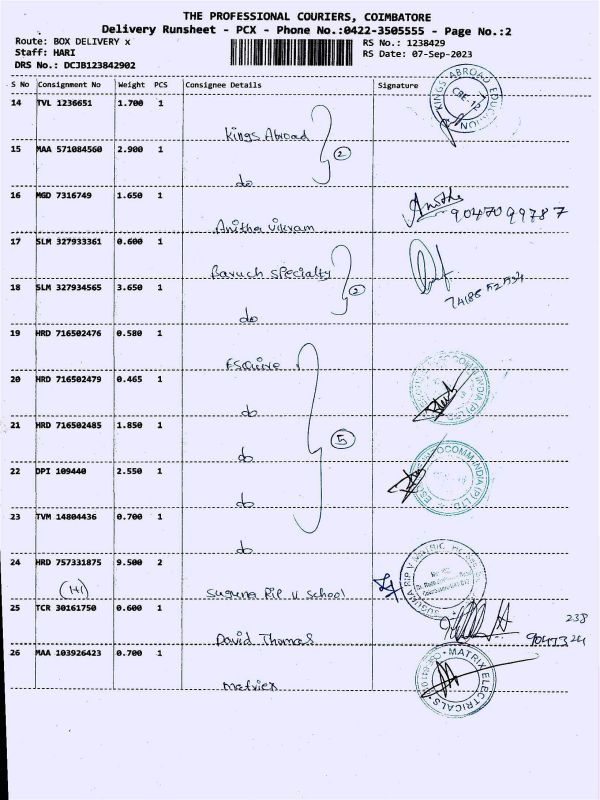 THE PROFESSIONAL COURIERS, COIMBATORE
Delivery Runsheet - PCX - Phone No.:0422-3505555 - Page No.:2
Route: BOX DELIVERY x RS No.: 1238429
Staff: HARI RS Date: 07-Sep-2023
DRS No.: DCJB123842902
S No Consignment No Weight PCS Consignee Details Signature
14 TVL 1236651 1.700 1
Kings Abroad
KINGS ABROAD EDUCATION CBE-12
15 MAA 571084560 2.900 1 2
do
16 MGD 7316749 1.650 1
Anitha Vikram
Anitha 9047099787
17 SLM 327933361 0.600 1
Baruch Specialty
18 SLM 327934565 3.650 1 2
do
19 HRD 716502476 0.580 1
Esquire
20 HRD 716502479 0.465 1
do
21 HRD 716502485 1.850 1 5
do
22 DPI 109440 2.550 1
do
23 TVM 14804436 0.700 1
do
24 HRD 757331875 9.500 2
(HI)
Suguna Rip V School
SUGUNA RIP V MATRIC
25 TCR 30161750 0.600 1
David Thomas
238
9047324
26 MAA 103926423 0.700 1
Matrix
MATRIX ELECTRICALS